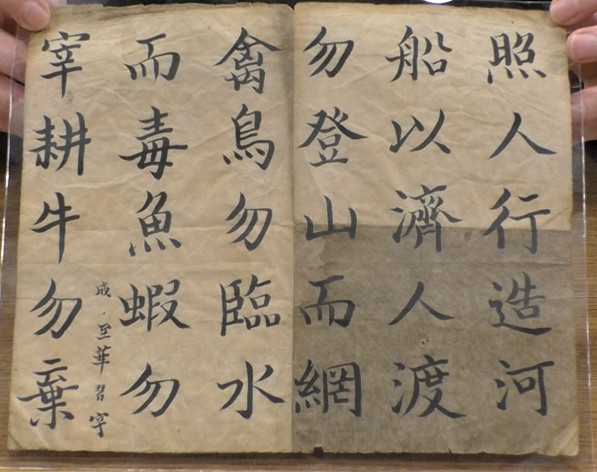 照人行造河
船以濟人渡
勿登山而網
禽鳥勿臨水
而毒魚蝦勿
宰耕牛勿棄
成、至華習字